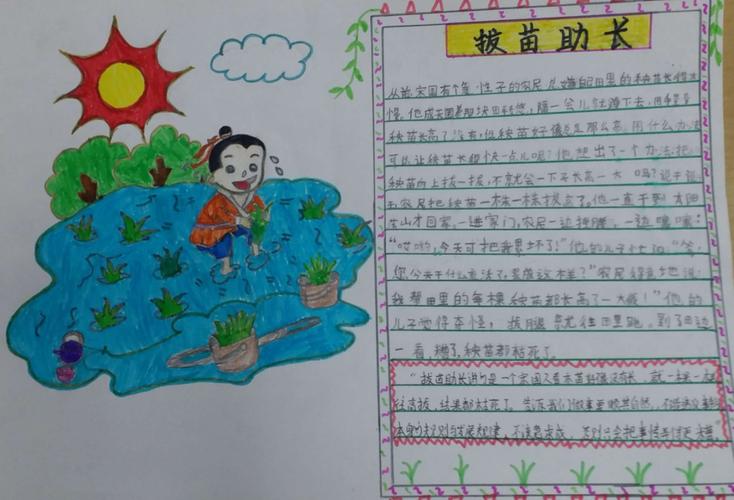 拔苗助长
从前宋国有个急性子的农民,总嫌自田里的秧苗长得太
慢。他成天围着那块田转悠,隔一会儿就蹲下去,用手量量
秧苗长高了没有,但秧苗好像总是那么高。用什么办法
可以让秧苗长得快一点儿呢?他想出了一个办法:把
秧苗向上拔一拔,不就会一下子长高一大 吗?说干就
农民把秧苗一棵一棵拔高了。他一直干到太阳
山才回家。一进家门,农民一边捶腰,一边嚷嚷:
“哎哟,今天可把我累坏了!”他的儿子忙问:“爹,
你今天干什么重活了,累成这样?”农民得意地说:
我帮田里的每棵秧苗都长高了一大截!”他的
儿子觉得奇怪,拔腿就往田里跑。到了田边
一看,糟了,秧苗都枯死了。
“拔苗助长讲的是一个宋国人看禾苗 没有长,就一棵一棵
往高拔,结果都枯死了。告诉我们做事要顺其自然,不能
规律,不 急 成,否则只会把事情弄得更糟”